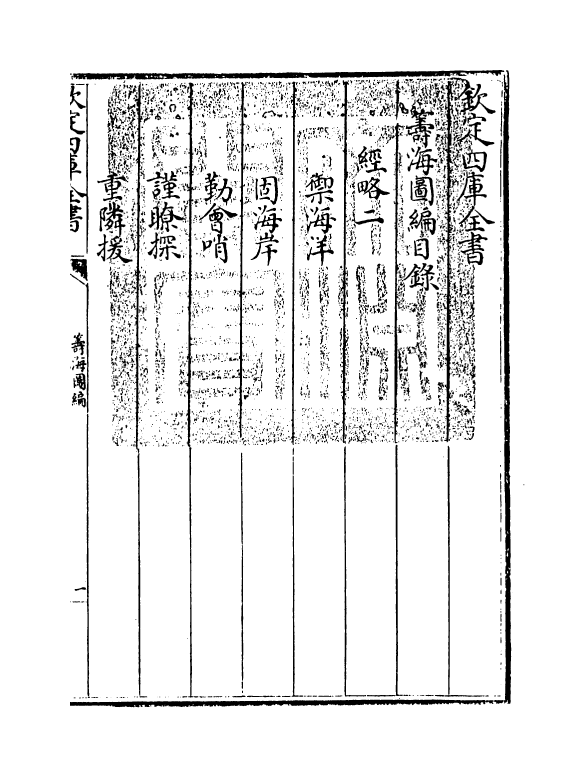 欽定四庫全書
籌海圖編目録
經略二
禦海洋
固海岸
勤會哨
謹瞭探
重隣援
欽定四庫全書
籌海圖編
一